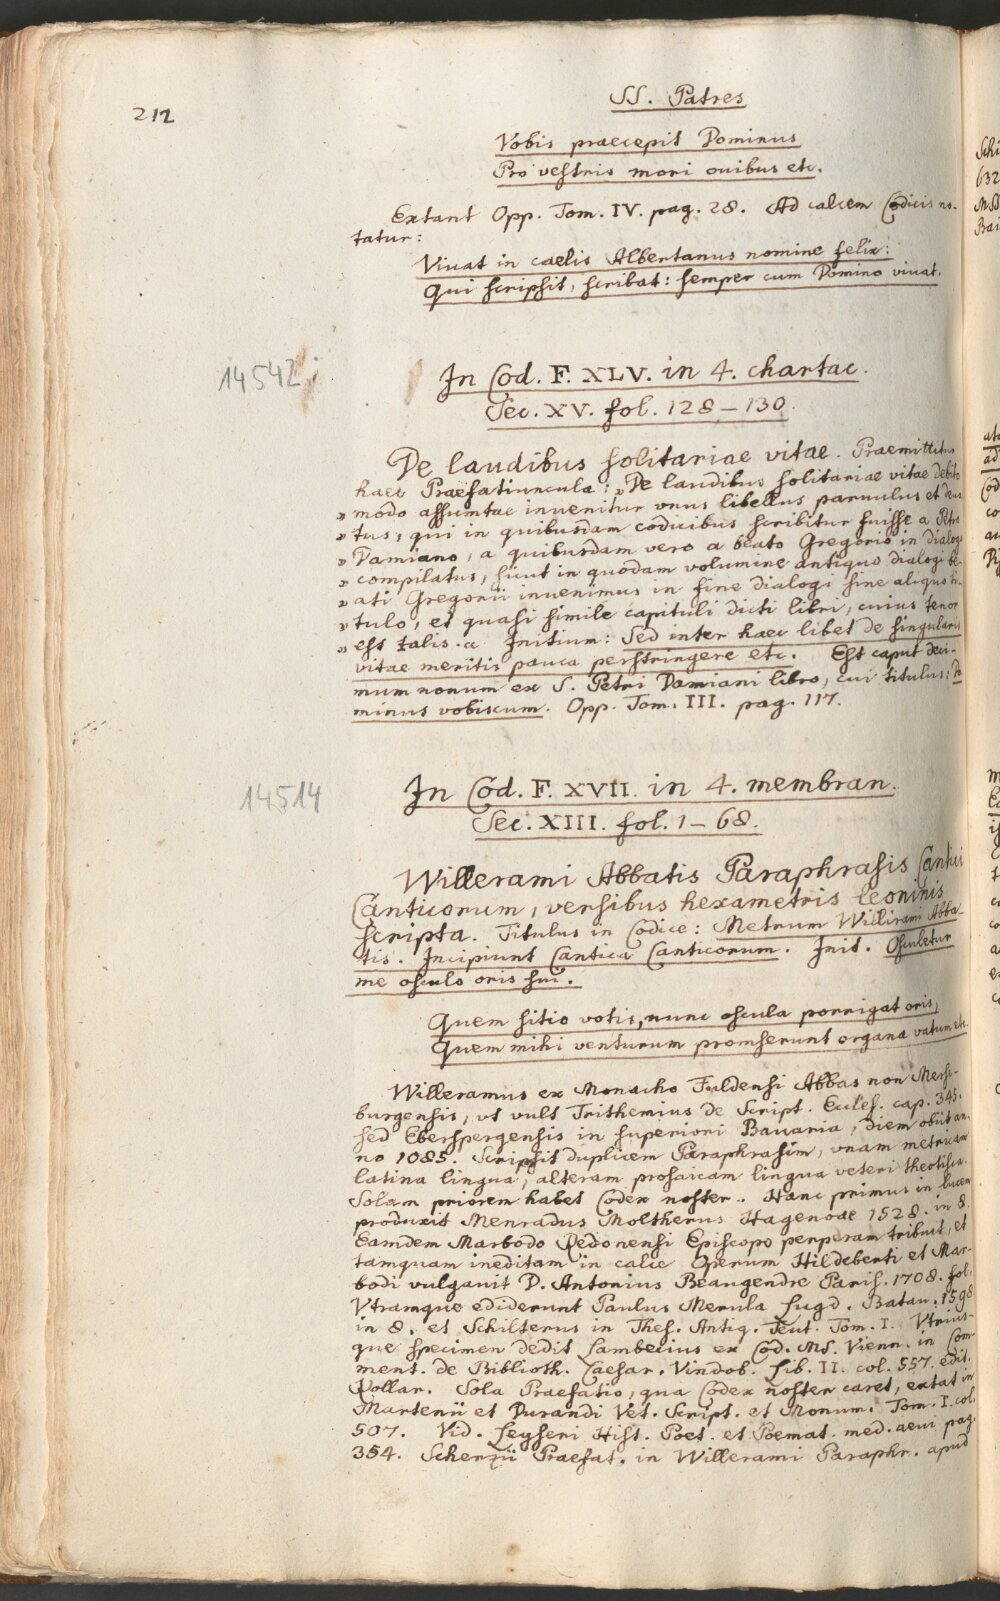 212
SS. Patres
Vobis praecepit Dominus
Pro vestris mori ovibus etc.
Extant Opp. Tom. IV. pag. 28. Ad calcem Codicis no-
tatur:
Vivat in caelis Albertanus nomine felix:
Qui scripsit, scribat: semper cum Domino vivat.
14542
In Cod. F. XLV. in 4. chartac.
Sec. XV. fol. 128–130.
De laudibus solitariae vitae. Praemittitur
haec Praefatiuncula: „De laudibus solitariae vitae debito
„ modo assumtae invenitur unus libellus parvulus et
„ tus, qui in quibusdam codicibus scribitur fuisse a Petro
„ Damiano, a quibusdam vero a beato Gregorio in dialog
„ compilatus, sicut in quodam volumine antiquo dialogi be-
„ ati Gregorii invenimus in fine dialogi sine aliquo ti-
„ tulo, et quasi simile capituli dicti libri, cuius tenor
„ est talis.“ Initium: Sed inter haec libet de singularis
vitae meritis pauca perstringere etc. Est caput deci-
mum nonum ex S. Petri Damiani libro, cui titulus: Do
minus vobiscum. Opp. Tom. III. pag. 117.
14514
In Cod. F. XVII. in 4. membran.
Sec. XIII. fol. 1–68.
Willerami Abbatis Paraphrasis Cantici
Canticorum, versibus hexametris leoninis
scripta. Titulus in Codice: Metrum Willirami Abba-
tis. Incipiunt Cantica Canticorum. Init. Osculetur
me osculo oris sui.
Quem sitio votis, nunc oscula porrigat oris,
Quem mihi venturum promserunt organa vatum etc.
Willeramus ex Monacho Fuldensi Abbas non Merse-
burgensis, ut vult Trithemius de Script. Eccles. cap. 345.
sed Eberspergensis in superiori Bavaria, diem obiit an-
no 1085. Scripsit duplicem Paraphrasim, unam metricam
latina lingua, alteram prosaicam lingua veteri theotisca.
Solam priorem habet Codex noster. Hanc primus in lucem
produxit Menradus Moltherus Hagenoae 1528. in 8.
Eamdem Marbodo Redonensi Episcopo perperam tribuit, et
tamquam ineditam in calce Operum Hildeberti et Mar-
bodi vulgavit D. Antonius Beaugendre Paris. 1708. fol.
Utramque ediderunt Paulus Merula Lugd. Batav. 1598
in 8. et Schilterus in Thes. Antiq. Teut. Tom. I. Utrius-
que specimen dedit Lambecius ex Cod. MS. Vienn. in Com-
ment. de Biblioth. Caesar. Vindob. Lib. II. col. 557. edit.
Kollar. Sola Praefatio, qua Codex noster caret, extat in
Martenii et Durandi Vet. Script. et Monum. Tom. I. col.
507. Vid. Leyseri Hist. Poet. et Poemat. med. aevi pag.
354. Scherzii Praefat. in Willerami Paraphr. apud